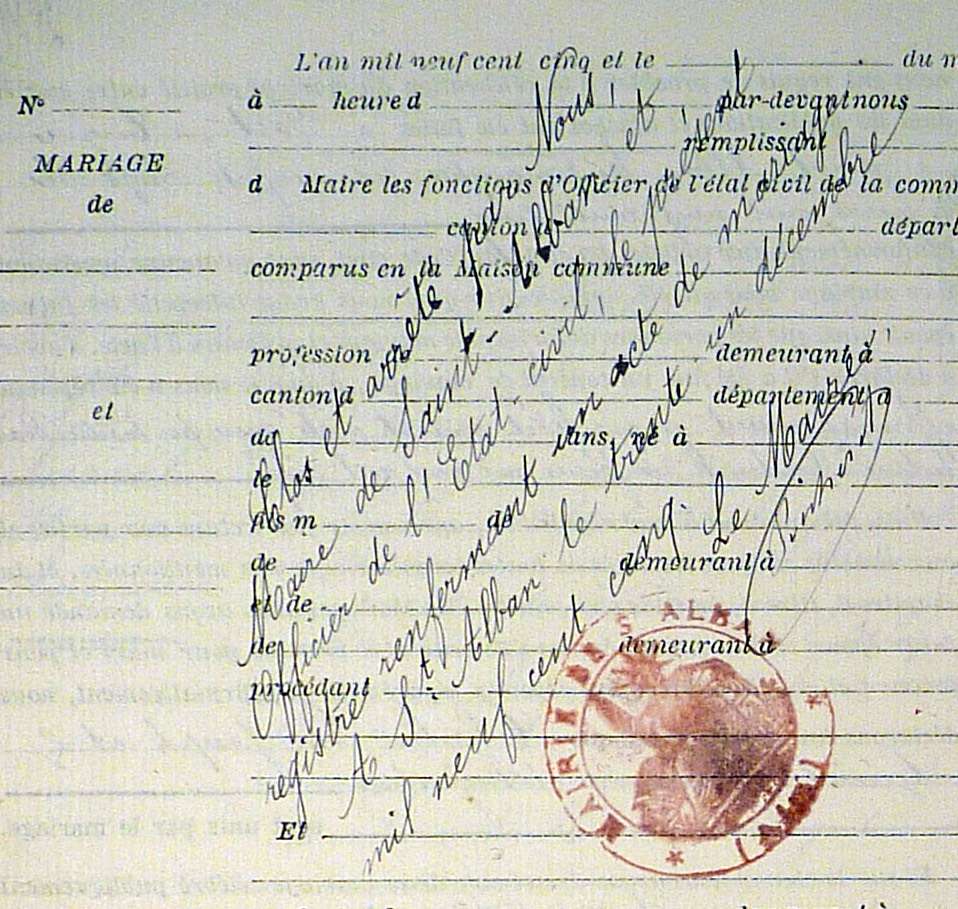 L'an mil neuf cent cinq et le du m
N°
à heure d par-devant nous
MARIAGE
remplissant
de
d Maire les fonctions d'Officier de l'état civil de la comm
canton d départ
comparus en la Maison commune
profession de demeurant à
canton d département d
et
du ans, né à
le
fils m de
de demeurant à
et de
de demeurant à
procédant
Et
Clos et arrêté par Nous,
Maire de Saint-Alban et
Officier de l'Etat-civil, le présent
registre renfermant un acte de mariage
A St Alban le trente un décembre
mil neuf cent cinq. Le Maire,
MAIRIE DE S ALBAN